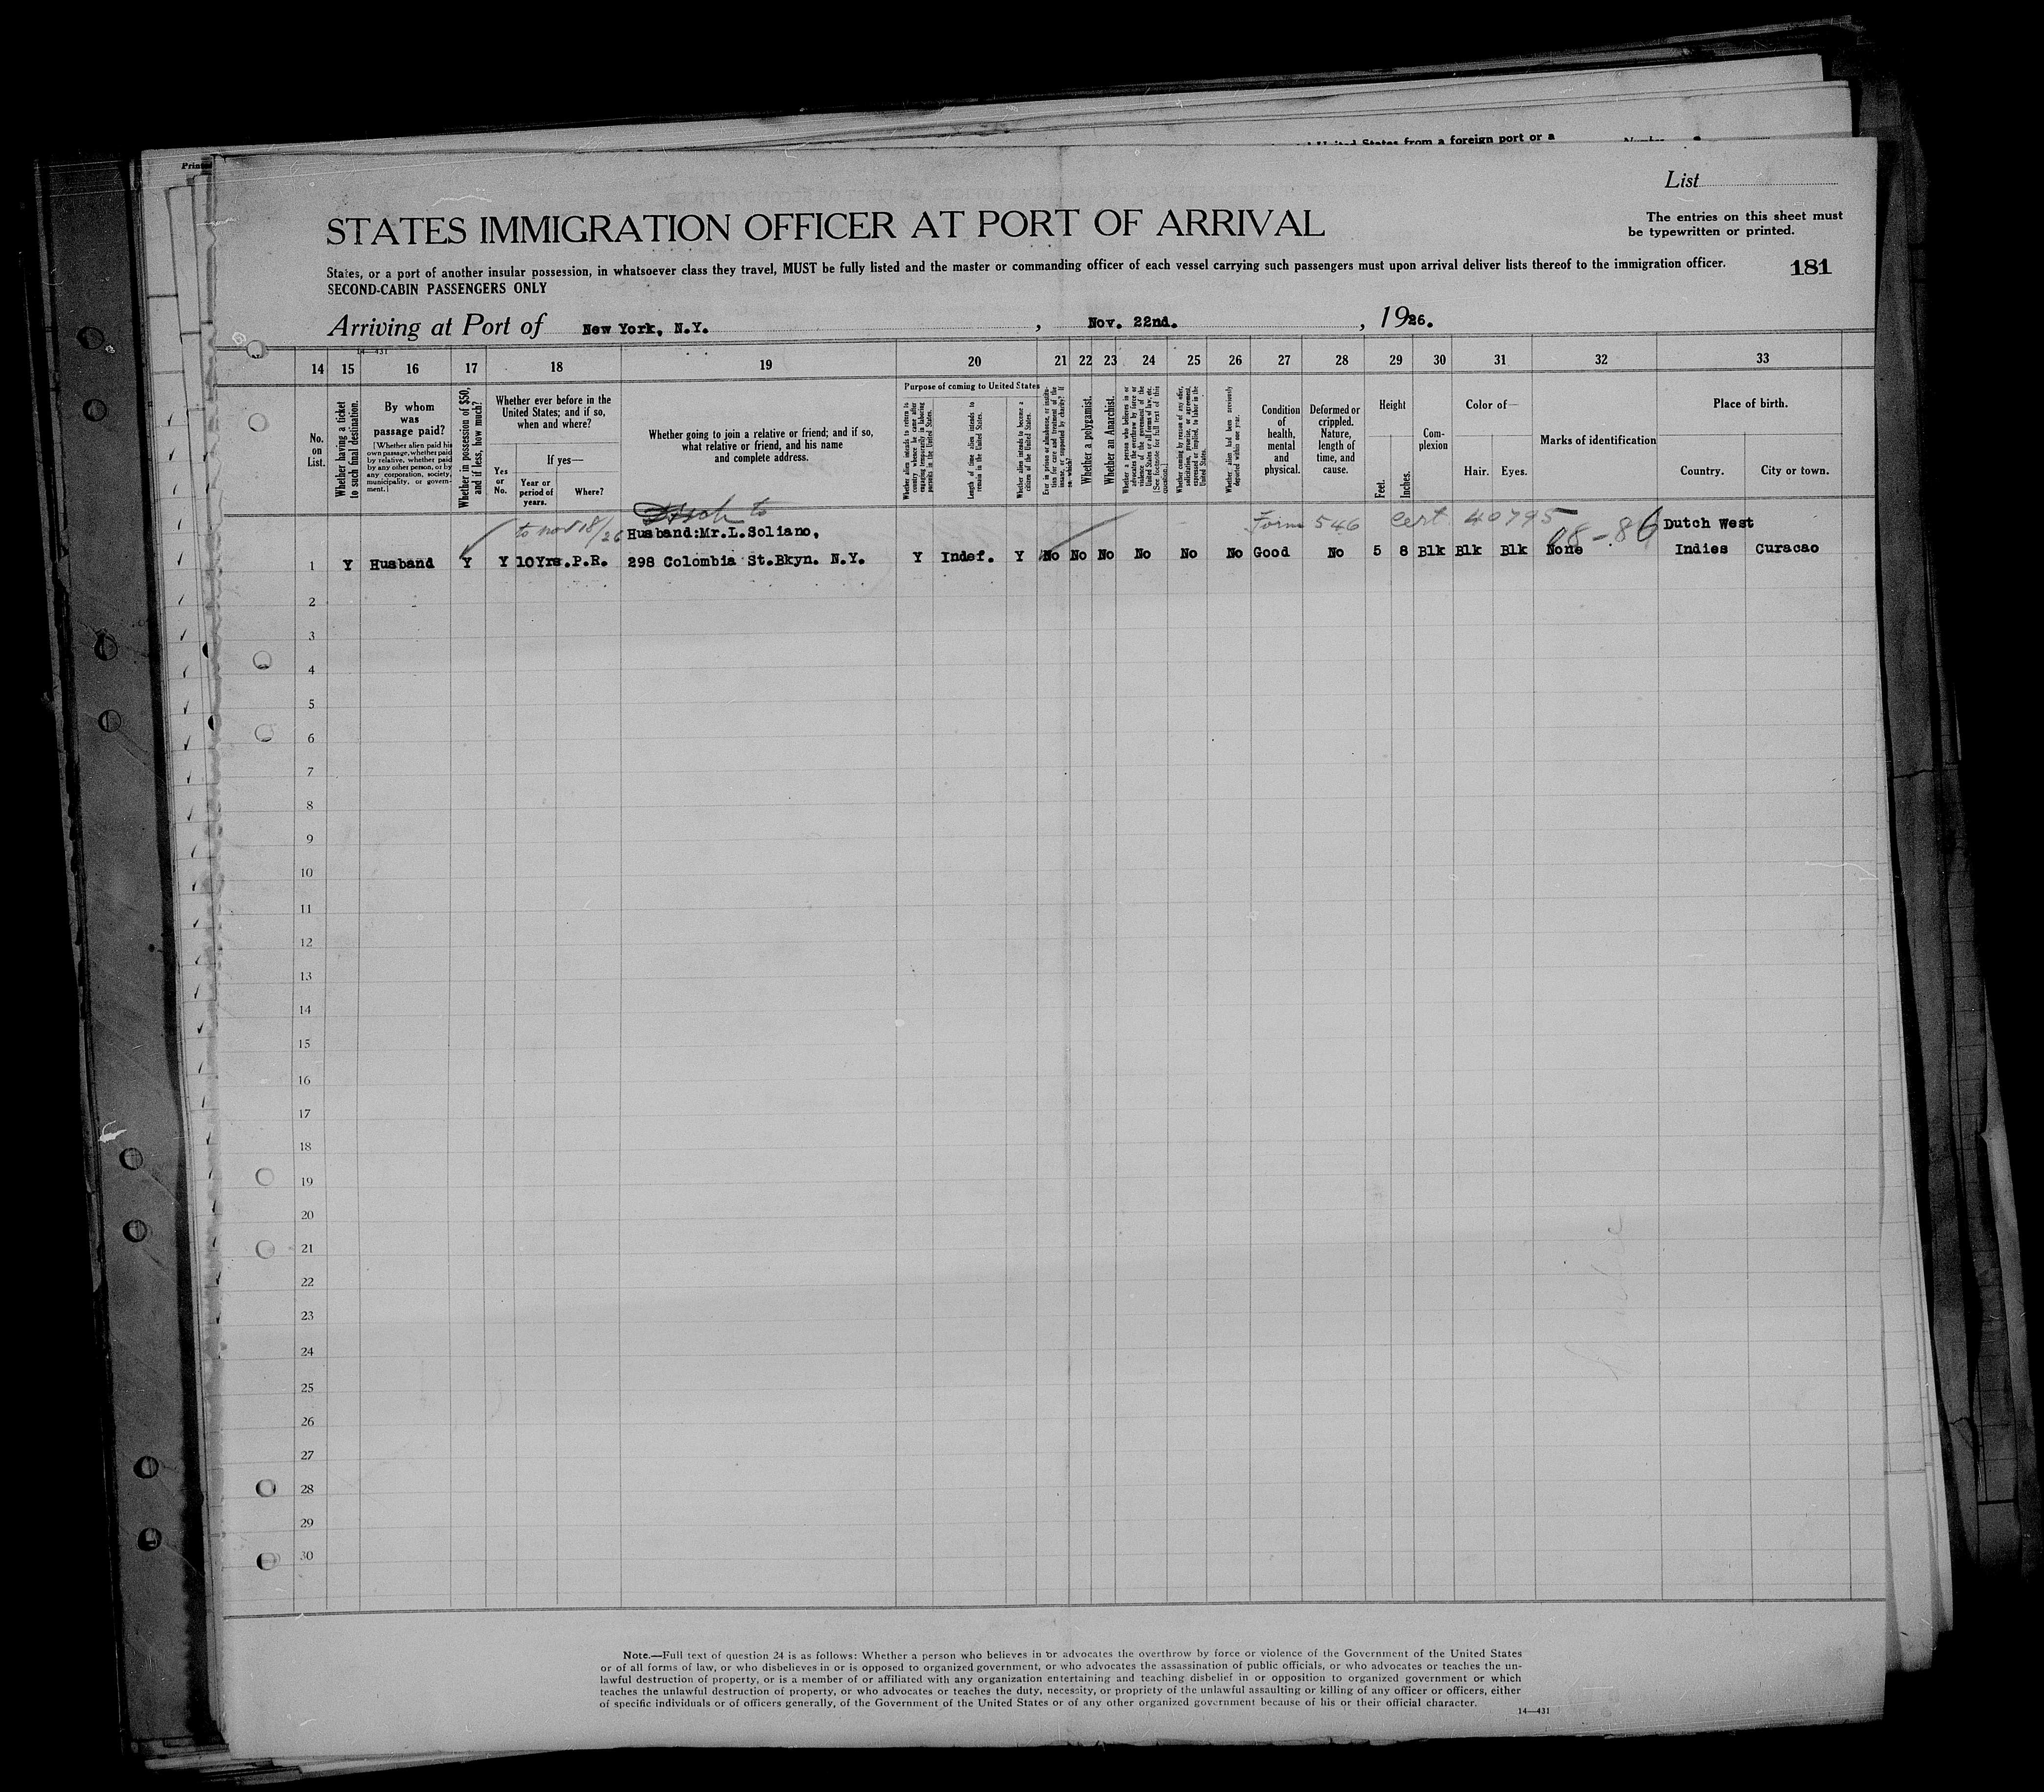 Printed
United States from a foreign port or a
Number
List
STATES IMMIGRATION OFFICER AT PORT OF ARRIVAL
The entries on this sheet must
be typewritten or printed.
States, or a port of another insular possession, in whatsoever class they travel, MUST be fully listed and the master or commanding officer of each vessel carrying such passengers must upon arrival deliver lists thereof to the immigration officer.
181
SECOND-CABIN PASSENGERS ONLY
Arriving at Port of New York, N.Y. , Nov. 22nd. , 1926.
14—431
14 15 16 17 18 19 20 21 22 23 24 25 26 27 28 29 30 31 32 33
No.
on
List.
Whether having a ticket
to such final destination.
By whom
was
passage paid?
[Whether alien paid his
own passage, whether paid
by relative, whether paid
by any other person, or by
any corporation, society,
municipality, or govern-
ment.]
Whether in possession of $50,
and if less, how much?
Whether ever before in the
United States; and if so,
when and where?
Yes
or
No.
If yes—
Year or
period of
years.
Where?
Whether going to join a relative or friend; and if so,
what relative or friend, and his name
and complete address.
Purpose of coming to United States
Whether alien intends to return to
country whence he came after
engaging temporarily in laboring
pursuits in the United States.
Length of time alien intends to
remain in the United States.
Whether alien intends to become a
citizen of the United States.
Ever in prison or almshouse, or institu-
tion for care and treatment of the
insane, or supported by charity? If
so, which?
Whether a polygamist.
Whether an Anarchist.
Whether a person who believes in or
advocates the overthrow by force or
violence of the government of the
United States or all forms of law, etc.
[See footnote for full text of this
question.]
Whether coming by reason of any offer,
solicitation, promise, or agreement,
expressed or implied, to labor in the
United States.
Whether alien had been previously
deported within one year.
Condition
of
health,
mental
and
physical.
Deformed or
crippled.
Nature,
length of
time, and
cause.
Height
Feet.
Inches.
Com-
plexion
Color of—
Hair. Eyes.
Marks of identification
Place of birth.
Country. City or town.
to nov 18/26
to
Form 546 Cert 40795
08-86
Husband:Mr.L.Soliano,
Dutch West
1 Y Husband Y Y 10Yrs.P.R. 298 Colombia St.Bkyn. N.Y. Y Indef. Y No No No No No No Good No 5 8 Blk Blk Blk None Indies Curacao
2
3
4
5
6
7
8
9
10
11
12
13
14
15
16
17
18
19
20
21
22
23
24
25
26
27
28
29
30
Note.—Full text of question 24 is as follows: Whether a person who believes in or advocates the overthrow by force or violence of the Government of the United States
or of all forms of law, or who disbelieves in or is opposed to organized government, or who advocates the assassination of public officials, or who advocates or teaches the un-
lawful destruction of property, or is a member of or affiliated with any organization entertaining and teaching disbelief in or opposition to organized government or which
teaches the unlawful destruction of property, or who advocates or teaches the duty, necessity, or propriety of the unlawful assaulting or killing of any officer or officers, either
of specific individuals or of officers generally, of the Government of the United States or of any other organized government because of his or their official character.
14—431